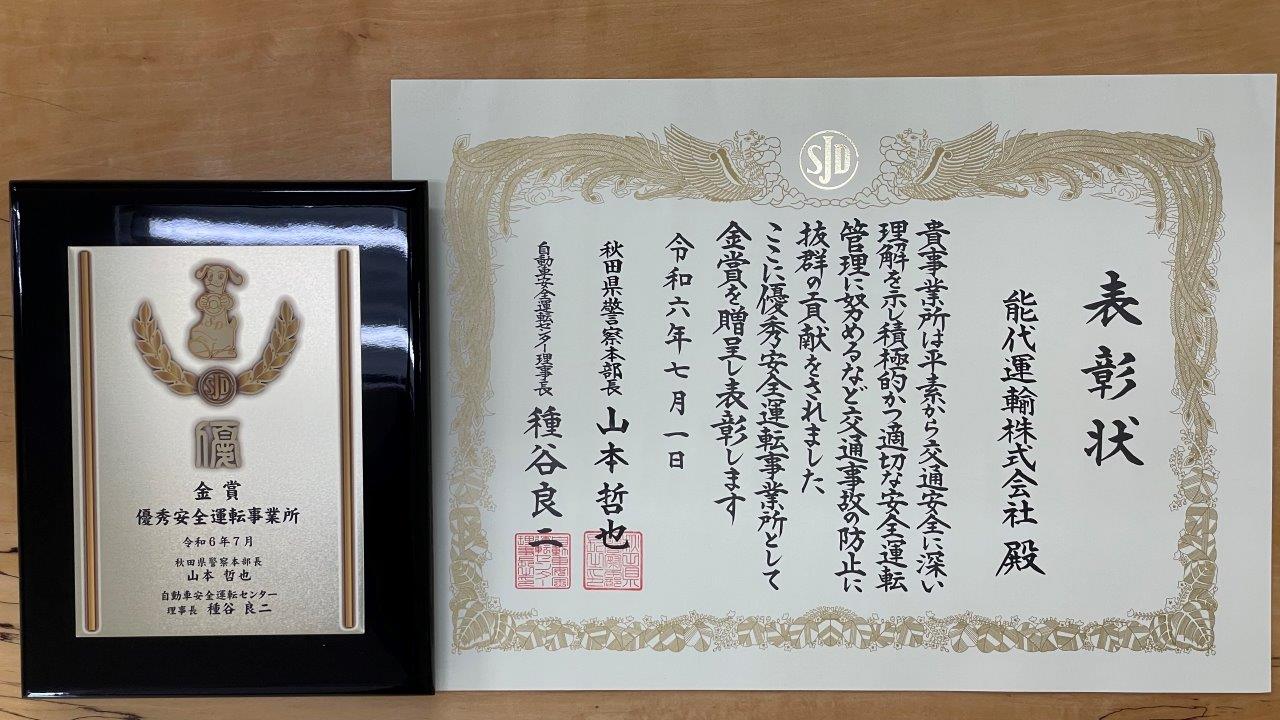 SJD
優
金賞
優秀安全運転事業所
令和6年7月
秋田県警察本部長
山本 哲也
自動車安全運転センター
理事長 種谷 良二
SJD
表彰状
能代運輸株式会社 殿
貴事業所は平素から交通安全に深い
理解を示し積極的かつ適切な安全運転
管理に努めるなど交通事故の防止に
抜群の貢献をされました
ここに優秀安全運転事業所として
金賞を贈呈し表彰します
令和六年七月一日
秋田県警察本部長 山本哲也
自動車安全運転センター理事長 種谷良二